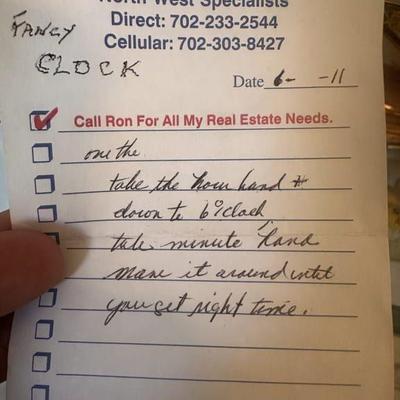 North West Specialists
Direct: 702-233-2544
Cellular: 702-303-8427
FANCY
CLOCK
Date 6- -11
Call Ron For All My Real Estate Needs.
on the
take the hour hand
down to 6 o'clock
take minute hand
move it around until
you set right time.